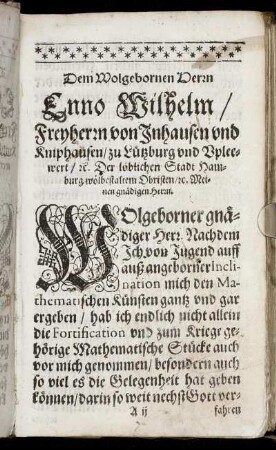 Dem Wolgebornen Herꝛn
Enno Wilhelm /
Freyherꝛn von Jnhausen vnd
Kniphausen / zu Lützburg vnd Vplee-
wert / ꝛc. Der löblichen Stadt Ham-
burg wolbestaltem Obristen / ꝛc. Mei-
nen gnädigen Herꝛn.
WOlgeborner gnä-
diger Herꝛ. Nachdem
Jch von Jugend auff
auß angeborner Incli-
nation mich den Ma-
thematischen Künsten gantz vnd gar
ergeben / hab ich endlich nicht allein
die Fortification vnd zum Kriege ge-
hörige Mathematische Stücke auch
vor mich genommen / besondern auch
so viel es die Gelegenheit hat geben
können / darin so weit nechst Gott ver-
A ij fahren